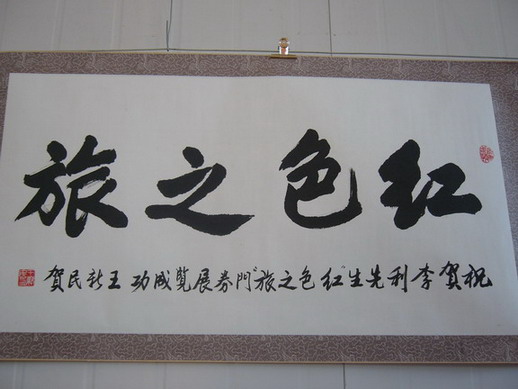 红色之旅
祝贺李利先生"红色之旅"门券展览成功 王新民贺